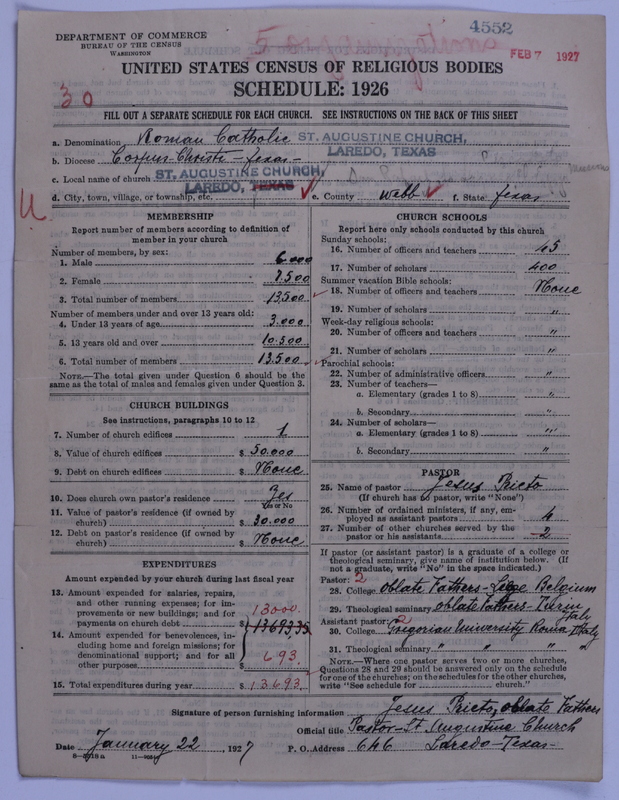 4552
DEPARTMENT OF COMMERCE
BUREAU OF THE CENSUS
WASHINGTON
FEB 7 1927
UNITED STATES CENSUS OF RELIGIOUS BODIES
SCHEDULE: 1926
30
FILL OUT A SEPARATE SCHEDULE FOR EACH CHURCH. SEE INSTRUCTIONS ON THE BACK OF THIS SHEET
a. Denomination Roman Catholic ST. AUGUSTINE CHURCH,
LAREDO, TEXAS
b. Diocese Corpus-Christi-Texas-
c. Local name of church ST. AUGUSTINE CHURCH,
LAREDO, TEXAS
d. City, town, village, or township, etc. e. County Webb f. State Texas
MEMBERSHIP
Report number of members according to definition of
member in your church
Number of members, by sex:
1. Male 6.000
2. Female 7.500
3. Total number of members 13,500
Number of members under and over 13 years old:
4. Under 13 years of age 3.000
5. 13 years old and over 10.500
6. Total number of members 13.500
NOTE.—The total given under Question 6 should be
same as the total of males and females given under Question 3.
CHURCH BUILDINGS
See instructions, paragraphs 10 to 12
7. Number of church edifices 1
8. Value of church edifices $ 50.000
9. Debt on church edifices $ None
10. Does church own pastor's residence Yes
Yes or No
11. Value of pastor's residence (if owned by
church) $ 30.000
12. Debt on pastor's residence (if owned by
church) $ None
EXPENDITURES
Amount expended by your church during last fiscal year
13. Amount expended for salaries, repairs,
and other running expenses; for im-
provements or new buildings; and for
payments on church debt $ 13000.
13693,35
14. Amount expended for benevolences, in-
cluding home and foreign missions; for
denominational support; and for all
other purposes $ 693.
15. Total expenditures during year $ 13693.
CHURCH SCHOOLS
Report here only schools conducted by this church
Sunday schools:
16. Number of officers and teachers 45
17. Number of scholars 400
Summer vacation Bible schools:
18. Number of officers and teachers None
19. Number of scholars "
Week-day religious schools:
20. Number of officers and teachers "
21. Number of scholars "
Parochial schools:
22. Number of administrative officers "
23. Number of teachers—
a. Elementary (grades 1 to 8) "
b. Secondary "
24. Number of scholars—
a. Elementary (grades 1 to 8) "
b. Secondary "
PASTOR
25. Name of pastor Jesus Prieto
(If church has no pastor, write "None")
26. Number of ordained ministers, if any, em-
ployed as assistant pastors 4
27. Number of other churches served by the
pastor or his assistants 2
If pastor (or assistant pastor) is a graduate of a college or
theological seminary, give name of institution below. (If
not a graduate, write "No" in the space indicated.)
Pastor: 2
28. College Oblate Fathers-Liege Belgium
29. Theological seminary Oblate Fathers-Turin
Italy
Assistant pastor: 2
30. College Gregorian University Roma-Italy
31. Theological seminary " " " "
NOTE.—Where one pastor serves two or more churches,
Questions 28 and 29 should be answered only on the schedule
for one of the churches; on the schedules for the other churches,
write "See schedule for church."
Signature of person furnishing information Jesus Prieto, oblate Father
Official title Pastor-St Augustine Church
Date January 22, 1927 P. O. Address 646 Laredo-Texas-